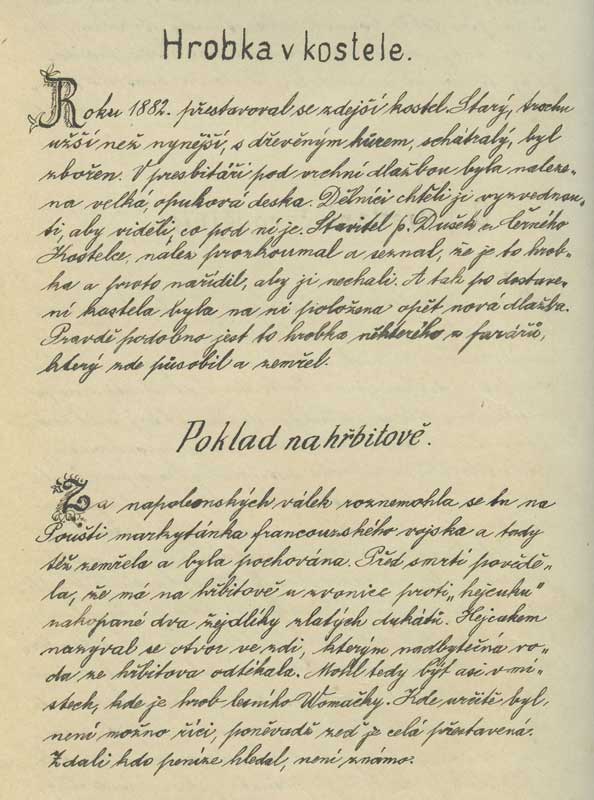 Hrobka v kostele.
Roku 1882. přestavoval se zdejší kostel. Starý, trochu
užší než nynější, s dřevěným kůrem, schátralý, byl
zbořen. V presbitáři pod vrchní dlažbou byla naleze-
na velká, opuková deska. Dělníci chtěli ji vyzvednou-
ti, aby viděli, co pod ní je. Stavitel p. Dušek z Černého
Kostelce, nález prozkoumal a seznal, že je to hrob-
ka a proto nařídil, aby ji nechali. A tak po dostave-
ní kostela byla na ni položena opět nová dlažba.
Pravdě podobno jest to hrobka některého z farářů,
který zde působil a zemřel.
Poklad na hřbitově.
Za napoleonských válek roznemohla se tu na
Poušti markytánka francouzského vojska a tady
též zemřela a byla pochována. Před smrtí pověдě-
la, že má na hřbitově u zvonice proti „hejcuku"
zakopané dva žejdlíky zlatých dukátů. Hejcukem
nazýval se otvor ve zdi, kterým nadbytečná vo-
da ze hřbitova odtékala. Mohl tedy být asi v mí-
stech, kde je hrob lesního Womačky. Kde určitě byl,
není možno říci, poněvadž zeď je celá přestavená.
Zdali kdo peníze hledal, není známo.